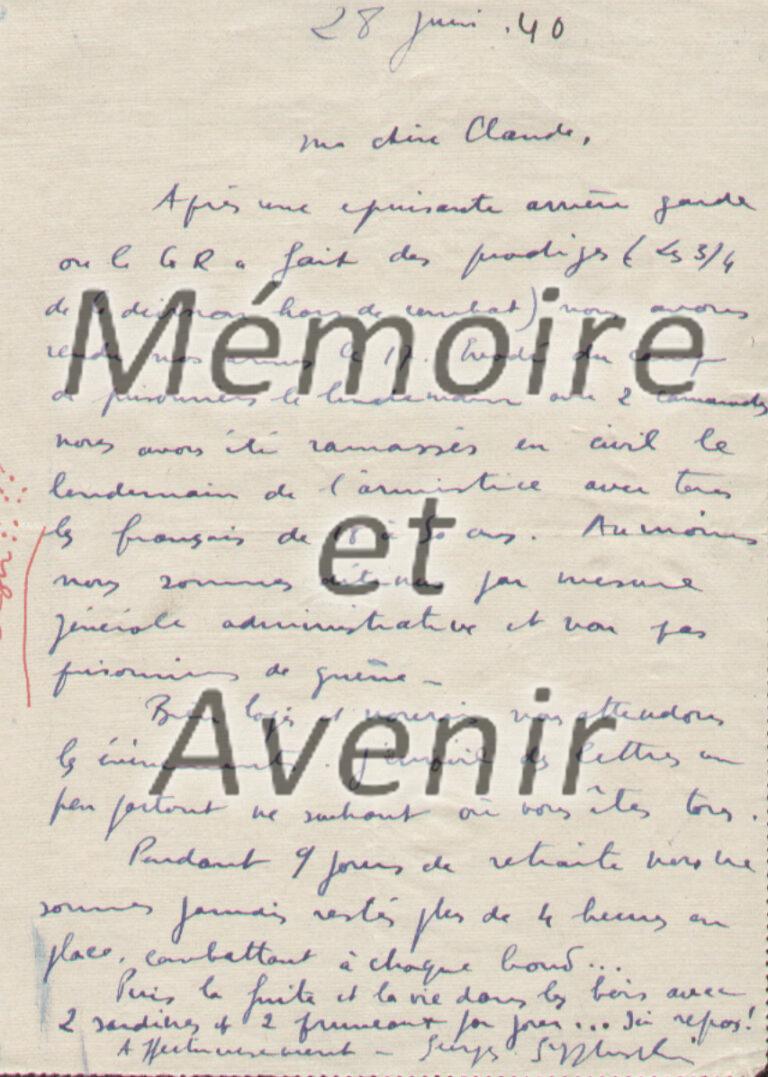 28 juin . 40
Ma chère Claude,
Après une épuisante arrière garde
ou le GR a fait des prodiges (les 3/4
de la division hors de combat) nous avons
rendu nos armes le 17. Evadé du camp
de prisonniers le lendemain avec 2 camarades
nous avons été ramassés en civil le
lendemain de l'armistice avec tous
les français de 18 à 50 ans. Au moins
nous sommes détenus par mesure
générale administrative et non pas
prisonniers de guerre –
Bien logés et nourris nous attendons
les évènements. J'envoie des lettres un
peu partout ne sachant où vous êtes tous.
Pendant 9 jours de retraite nous ne
sommes jamais restés plus de 4 heures en
place, combattant à chaque bond...
Puis la fuite et la vie dans les bois avec
2 sardines et 2 pruneaux par jour... Ici repos!
Affectueusement – Serge
Mémoire
et
Avenir